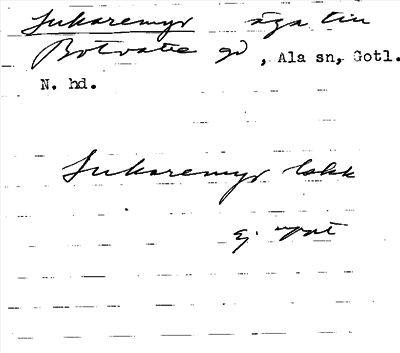 Sukaremyr äga till
Botvatte gd, Ala sn, Gotl.
N. hd.
Sukaremyr lokk
ej uppt